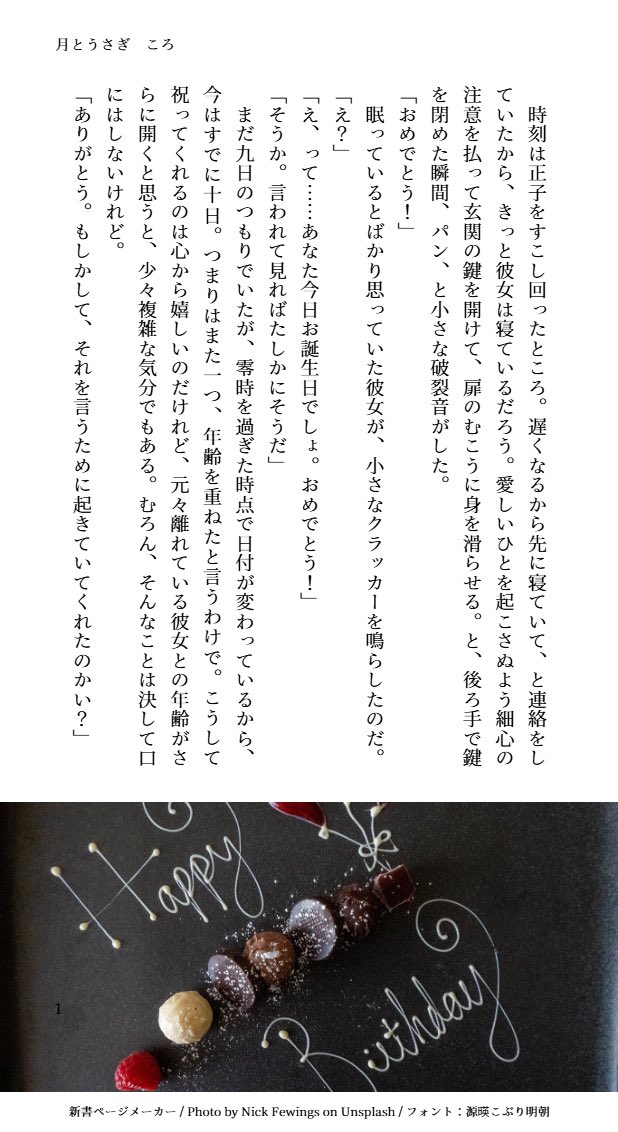 月とうさぎ　ころ
　時刻は正子をすこし回ったところ。遅くなるから先に寝ていて、と連絡をし
ていたから、きっと彼女は寝ているだろう。愛しいひとを起こさぬよう細心の
注意を払って玄関の鍵を開けて、扉のむこうに身を滑らせる。と、後ろ手で鍵
を閉めた瞬間、パン、と小さな破裂音がした。
「おめでとう！」
　眠っているとばかり思っていた彼女が、小さなクラッカーを鳴らしたのだ。
「え？」
「え、って……あなた今日お誕生日でしょ。おめでとう！」
「そうか。言われて見ればたしかにそうだ」
　まだ九日のつもりでいたが、零時を過ぎた時点で日付が変わっているから、
今はすでに十日。つまりはまた一つ、年齢を重ねたと言うわけで。こうして
祝ってくれるのは心から嬉しいのだけれど、元々離れている彼女との年齢がさ
らに開くと思うと、少々複雑な気分でもある。むろん、そんなことは決して口
にはしないけれど。
「ありがとう。もしかして、それを言うために起きていてくれたのかい？」
Happy
Birthday
1
新書ページメーカー / Photo by Nick Fewings on Unsplash / フォント：源暎こぶり明朝